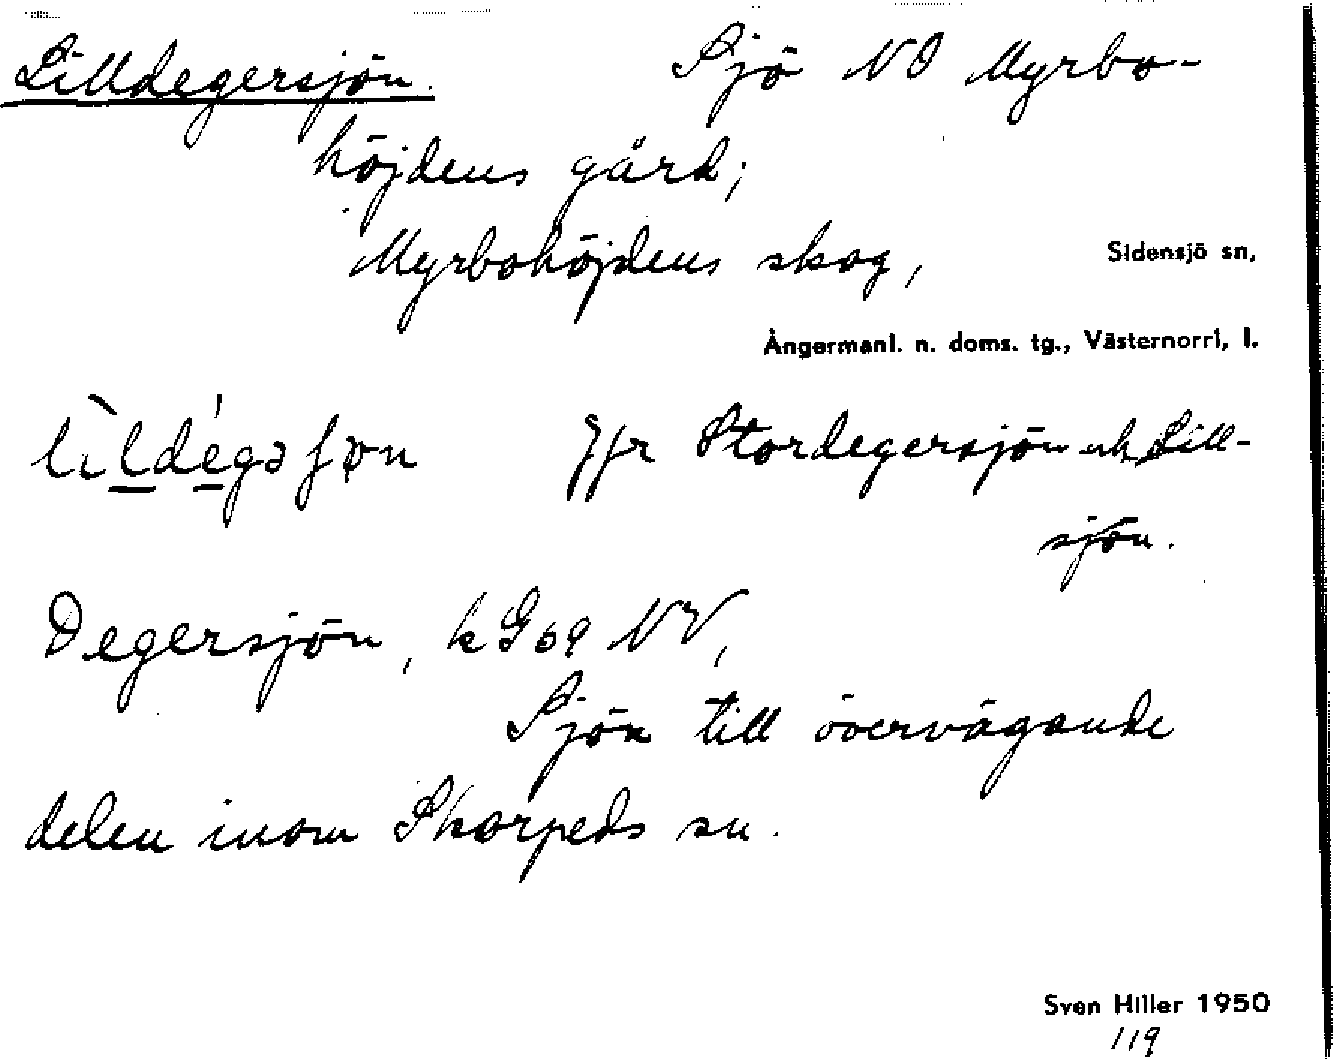 Lilldegersjön. Sjö NO Myrbo-
höjdens gård;
Myrbohöjdens skog, Sidensjö sn,
Ångermanl. n. doms. tg., Västernorrl, l.
Jfr Stordegersjön och Lill-
sjön.
Degersjön, k G 69 NV,
Sjön till övervägande
delen inom Skorpeds sn.
Sven Hiller 1950
119